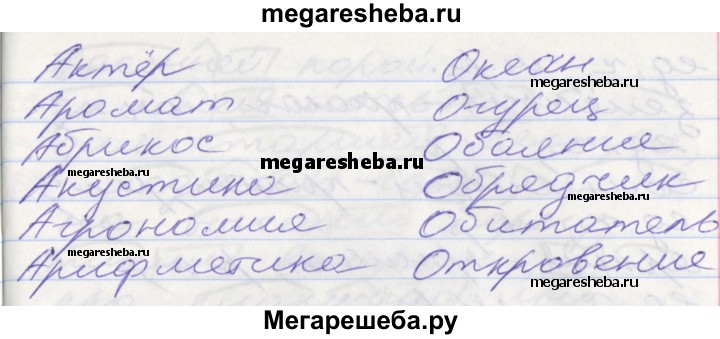 megaresheba.ru
Актёр Океан
megaresheba.ru
Аромат Огурец
Абрикос Обаяние
megaresheba.ru
Акустика Обрядчик
megaresheba.ru
Агрономия Обитатель
megaresheba.ru
Арифметика Откровение
megaresheba.ru
Мегарешеба.ру